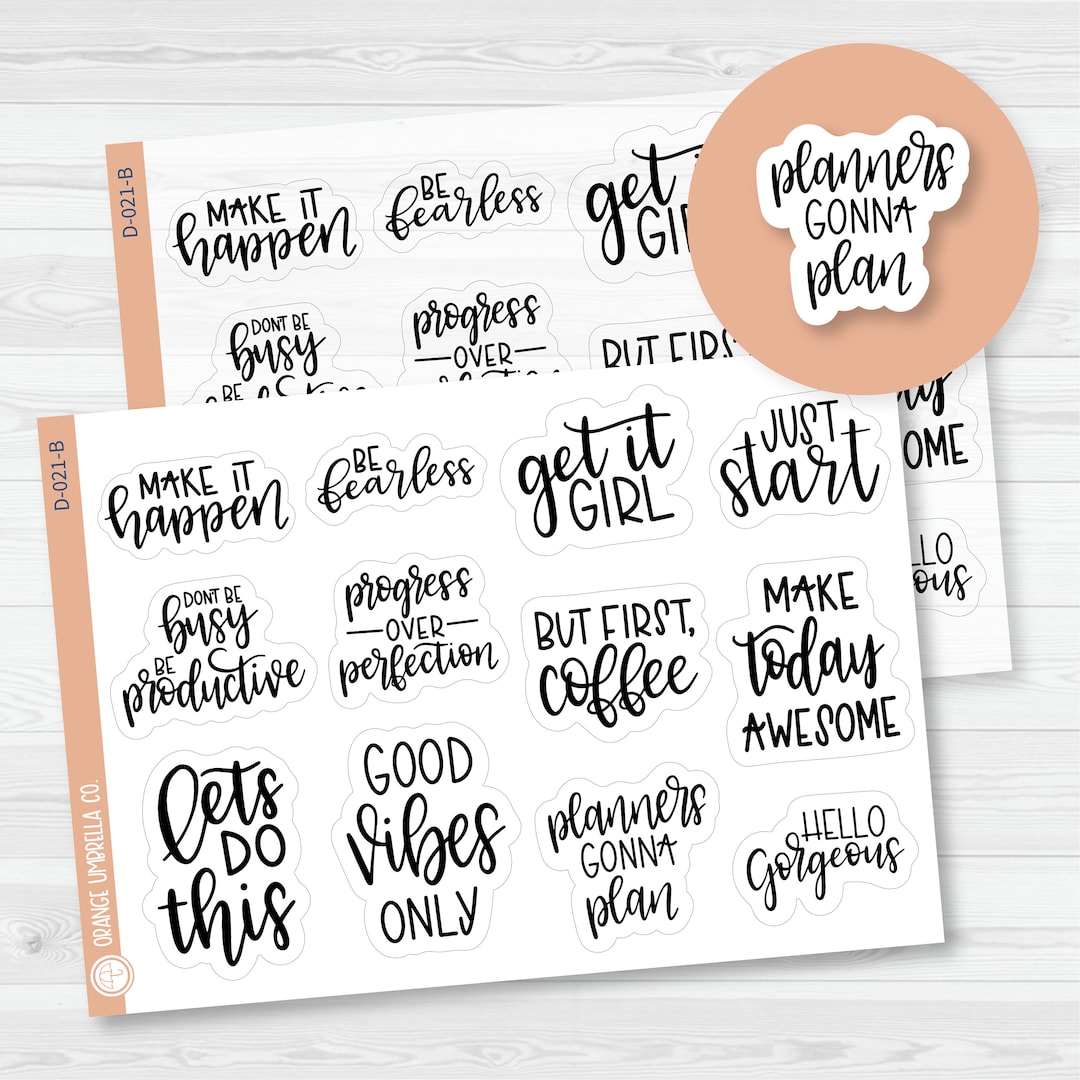 D-021-B
MAKE IT
happen
BE
fearless
get it
GIRL
DONT BE
busy
BE
progress
OVER
BUT FIRST
OME
LLO
ous
planners
GONNA
plan
D-021-B
ORANGE UMBRELLA CO.
MAKE IT
happen
BE
fearless
get it
GIRL
JUST
start
DONT BE
busy
BE
productive
progress
OVER
perfection
BUT FIRST,
coffee
MAKE
today
AWESOME
lets
DO
this
GOOD
vibes
ONLY
planners
GONNA
plan
HELLO
Gorgeous